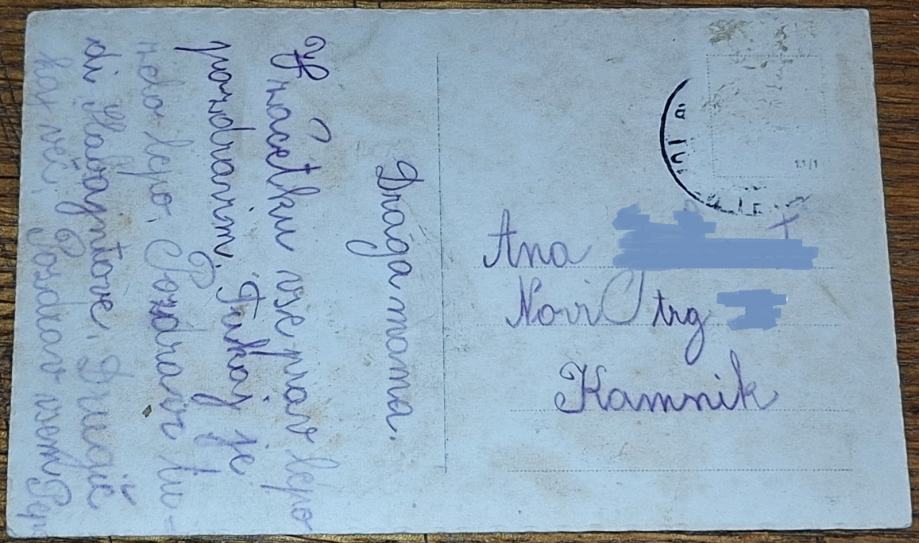 Draga mama.
V začetku vse prav lepo
pozdravim. Tukaj je
zelo lepo. Pozdravi tu=
di Drugič
kaj več. Pozdrav vsem
Ana
Novi trg
Kamnik